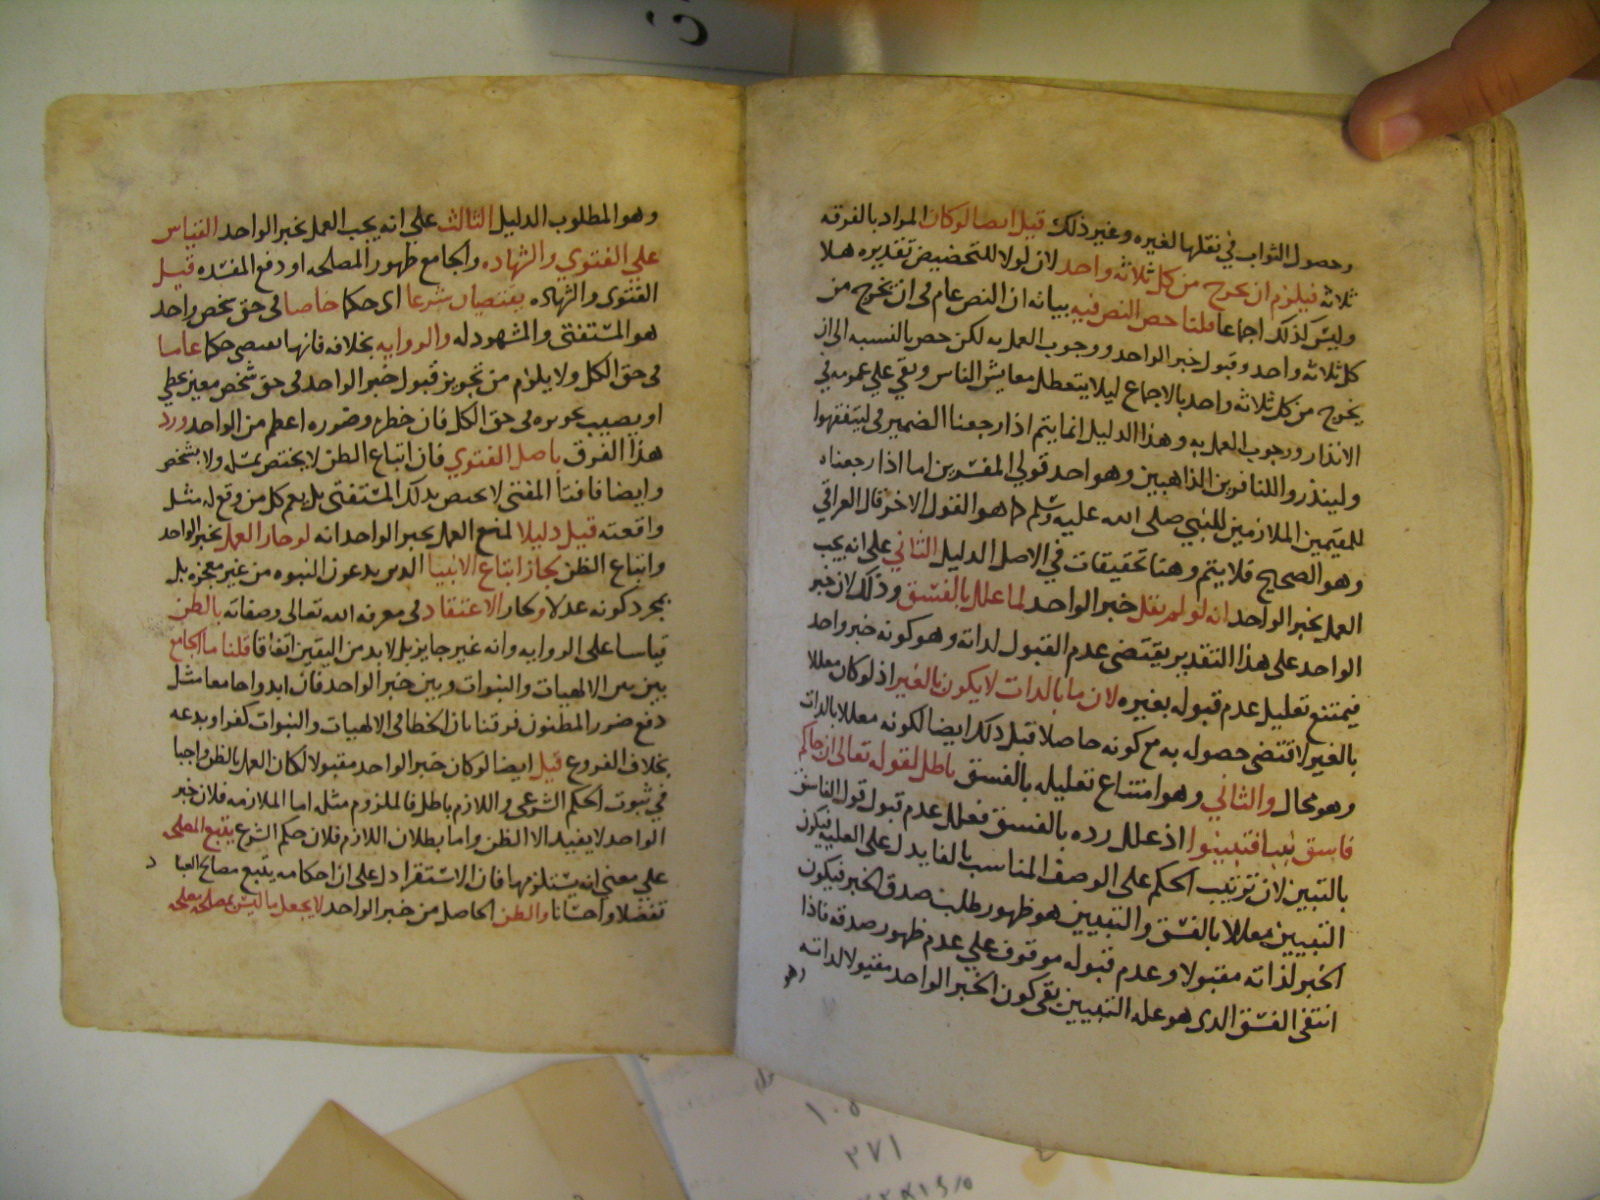 وحصول الثواب في نقلها لغيره وغير ذلك قيل ايضا لوكان المراد بالفرقه
ثلاثة فيلزم ان يخرج من كل ثلاثه واحد لان لولا للتحضيض تقديره هلا
وليس كذلك اجماعا قلنا خص النص فيه بيانه ان النص عام في ان يخرج من
كل ثلاثه واحد وقبول خبر الواحد ووجوب العمل به لكن خص بالنسبه الى ان
يخرج من كل ثلاثه واحد بالاجماع ليلا يتعطل معايش الناس وبقي علي عمومه في
الانذار ووجوب العمل به وهذا الدليل انما يتم اذا رجعنا الضمير في ليتفقهوا
ولينذروا اللنافرين الذاهبين وهو احد قولي المفسرين اما اذا رجعناه
للمقيمين الملازمين للنبي صلى الله عليه وسلم كما هو القول الاخر قال العراقي
وهو الصحيح فلا يتم وهنا تحقيقات في الاصل الدليل الثاني على انه يجب
العمل بخبر الواحد انه لو لم يقبل خبر الواحد لما علل بالفسق وذلك لان خبر
الواحد على هذا التقدير يقتضى عدم القبول لذاته وهو كونه خبر واحد
فيمتنع تعليل عدم قبوله بغيره لان ما بالذات لا يكون بالغير اذ لوكان معللا
بالغير لاقتضى حصوله به مع كونه حاصلا قبل ذلك ايضا لكونه معللا بالذات
وهو محال والثاني وهو امتناع تعليله بالفسق باطل لقوله تعالى ان جاكم
فاسق بنبا فتبينوا اذ علل رده بالفسق فعلل عدم قبول قول الفاسق
بالتبين لان ترتيب الحكم على الوصف المناسب بالفا يدل على العليه فيكون
التبيين معللا بالفسق والتبيين هو ظهور طلب صدق الخبر فيكون
الخبر لذاته مقبولا وعدم قبوله موقوف علي عدم ظهور صدقه فاذا
انتفى الفسق الذي هو عله التبيين بقى كون الخبر الواحد مقبولا لذاته
وهو
وهو المطلوب الدليل الثالث على انه يجب العمل بخبر الواحد القياس
علي الفتوي والشهاده والجامع ظهور المصلحه او دفع المفسده قيل
الفتوى والشهاده يقتضيان شرعا اي حكما خاصا في حق شخص واحد
هو المستفتى والمشهود له والروايه بخلافه فانها تقتضي حكما عاما
في حق الكل ولا يلزم من تجويز قبول خبر الواحد في حق شخص معين يخطي
او يصيب تجويزه في حق الكل فان خطره وضرره اعظم من الواحد ورد
هذا الفرق باصل الفتوي فان اتباع الظن لا يختص بمسله ولا بشخص
وايضا فافتا المفتى لا يختص بذلك المستفتى بل يعم كل من وقع له مثل
واقعته قيل دليلا لمنع العمل بخبر الواحد انه لو جاز العمل بخبر الواحد
واتباع الظن لجاز اتباع الانبيا الذين يدعون النبوه من غير معجزه بل
بمجرد كونه عدلا وكان الاعتقاد في معرفه الله تعالى وصفاته بالظن
قياسا على الروايه وانه غير جايز بل لابد من اليقين اتفاقا قلنا ما الجامع
بين الالهيات والنبوات وبين خبر الواحد فان ابدوا جامعا مثل
دفع ضرر المظنون فرقنا بان الخطا في الالهيات والنبوات كفر او بدعه
بخلاف الفروع قيل ايضا لوكان خبر الواحد مقبولا لكان العمل بالظن واجبا
في ثبوت الحكم الشرعى واللازم باطل فالملزوم مثله اما الملازمه فلان خبر
الواحد لا يفيد الا الظن واما بطلان اللازم فلان حكم الشرع يتبع المصلحى
علي معنى انه يستلزمها فان الاستقرا دل على ان احكامه يتبع مصالح العبا د
تفضلا واحسانا والظن الحاصل من خبر الواحد لا يجعل ما ليس بمصلحه مصلحه
١٠٥
٢٧١